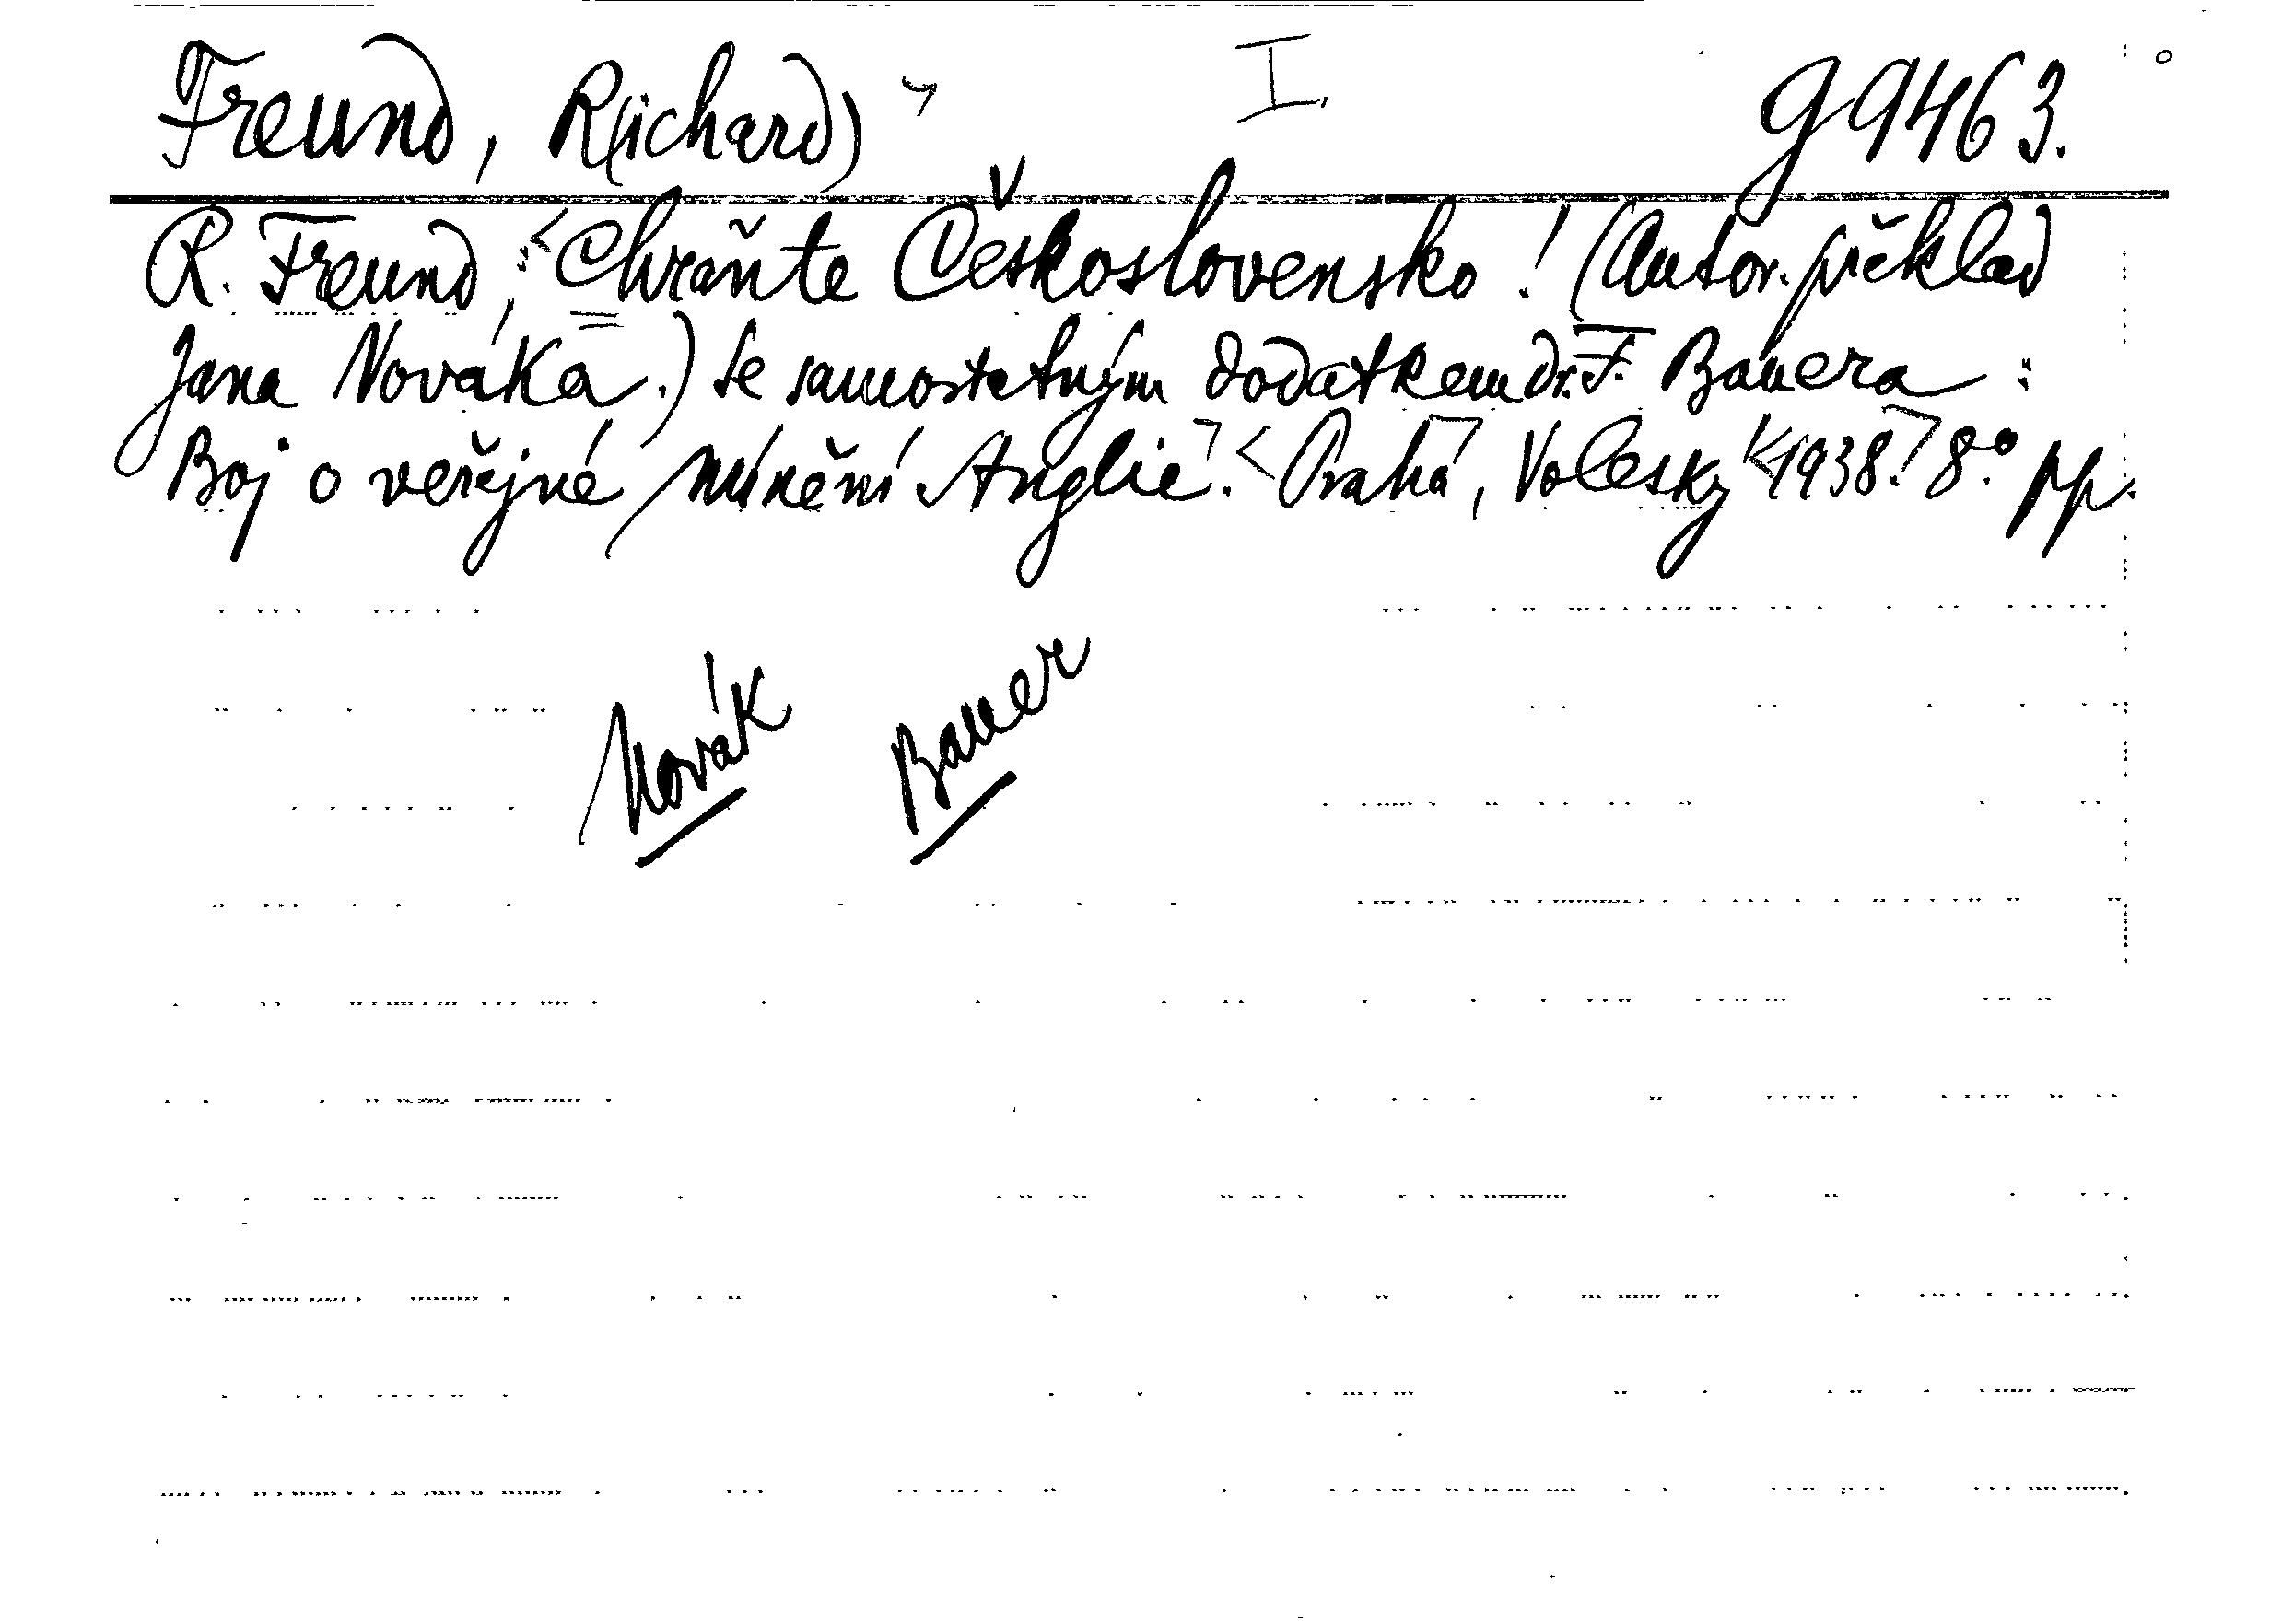 Freund, R(ichard) I, g 9463.
R. Freund, : Chraňte Československo! (Autor. překlad
Jana Nováka.) Se samostatným dodatkem dr. F. Bauera :
Boj o veřejné mínění Anglie. Praha, Voleský 1938. 8.° pp.
Novák Bauer